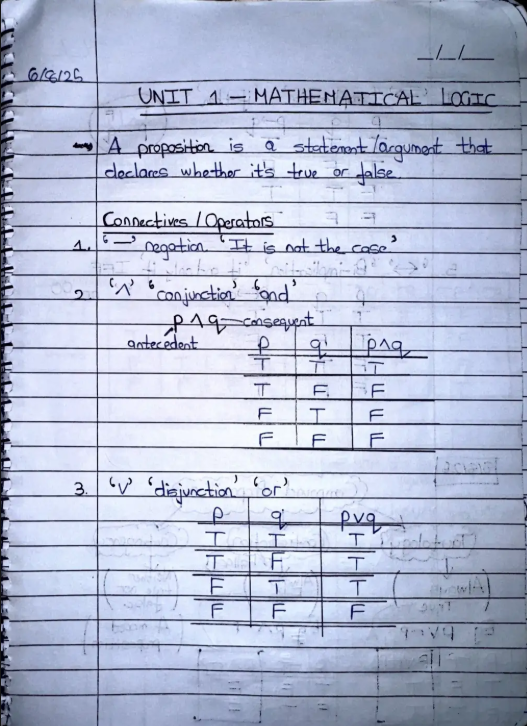 _/_/__
6/8/25
UNIT 1 – MATHEMATICAL LOGIC
A proposition is a statement/argument that
declares whether it's true or false
Connectives / Operators
1. '—' negation 'It is not the case'
2. '∧' 'conjunction' 'and'
p ∧ q consequent
antecedent
p q p∧q
T T T
T F F
F T F
F F F
3. 'V' 'disjunction' 'or'
p q p∨q
T T T
T F T
F T T
F F F